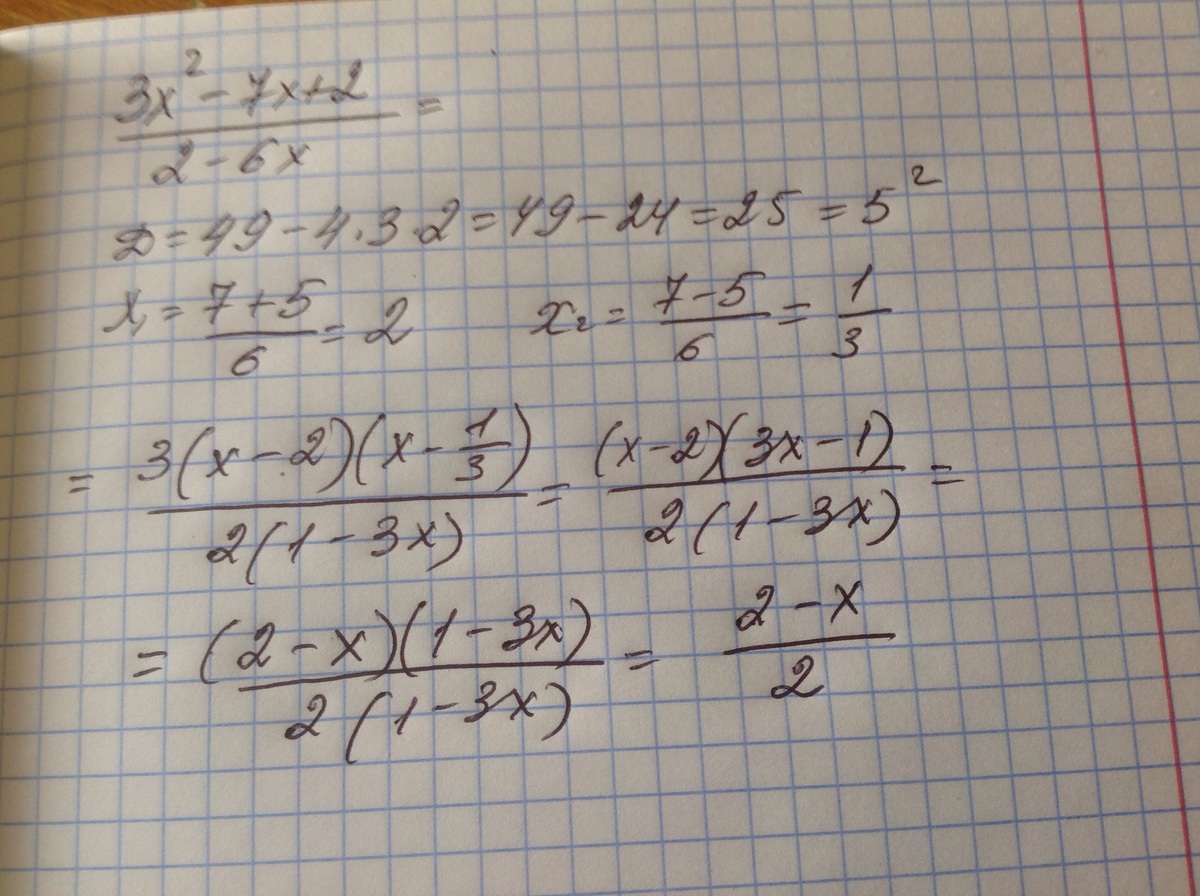 (3x² - 7x + 2)/(2 - 6x) =
D = 49 - 4·3·2 = 49 - 24 = 25 = 5²
x₁ = (7 + 5)/6 = 2 x₂ = (7 - 5)/6 = 1/3
= 3(x - 2)(x - 1/3)/(2(1 - 3x)) = (x - 2)(3x - 1)/(2(1 - 3x)) =
= (2 - x)(1 - 3x)/(2(1 - 3x)) = (2 - x)/2